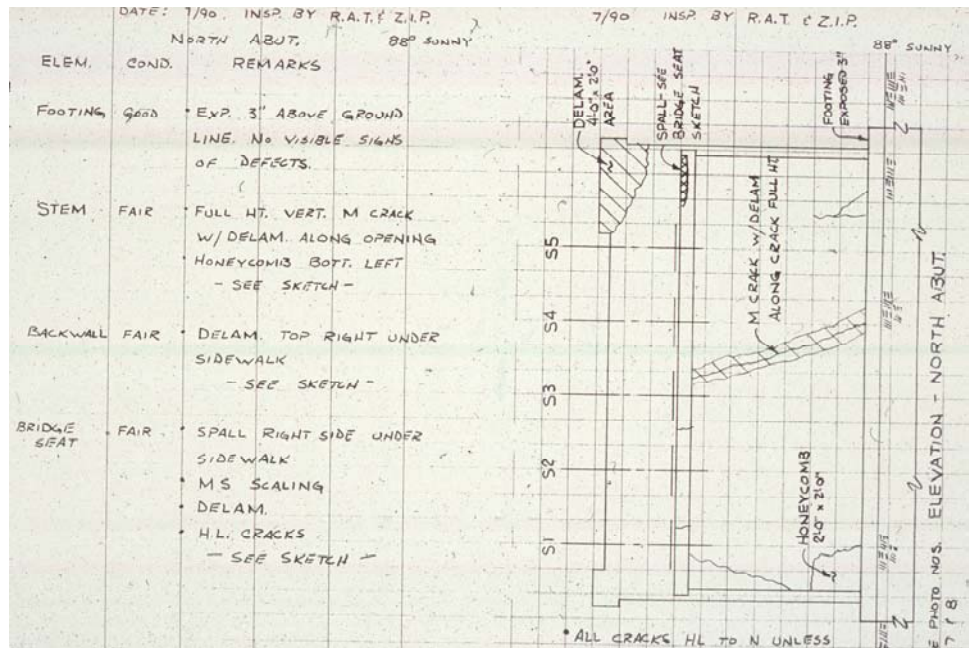 DATE: 7/90 INSP. BY R.A.T. & Z.I.P.
NORTH ABUT. 88° SUNNY
ELEM. COND. REMARKS
FOOTING GOOD • EXP. 3" ABOVE GROUND
LINE. NO VISIBLE SIGNS
OF DEFECTS.
STEM FAIR • FULL HT. VERT. M CRACK
W/DELAM. ALONG OPENING
• HONEYCOMB BOTT. LEFT
- SEE SKETCH -
BACKWALL FAIR • DELAM. TOP RIGHT UNDER
SIDEWALK
- SEE SKETCH -
BRIDGE SEAT FAIR • SPALL RIGHT SIDE UNDER
SIDEWALK
• MS SCALING
• DELAM.
• H.L. CRACKS
- SEE SKETCH -
7/90 INSP. BY R.A.T. & Z.I.P.
88° SUNNY
DELAM.
4'-0" x 2'-0"
AREA
SPALL-SEE
BRIDGE SEAT
SKETCH
FOOTING
EXPOSED 3"
M CRACK W/DELAM
ALONG CRACK FULL HT
HONEYCOMB
2'-0" x 2'-0"
S5
S4
S3
S2
S1
ELEVATION - NORTH ABUT.
PHOTO NO'S.
7 & 8
• ALL CRACKS HL TO N UNLESS